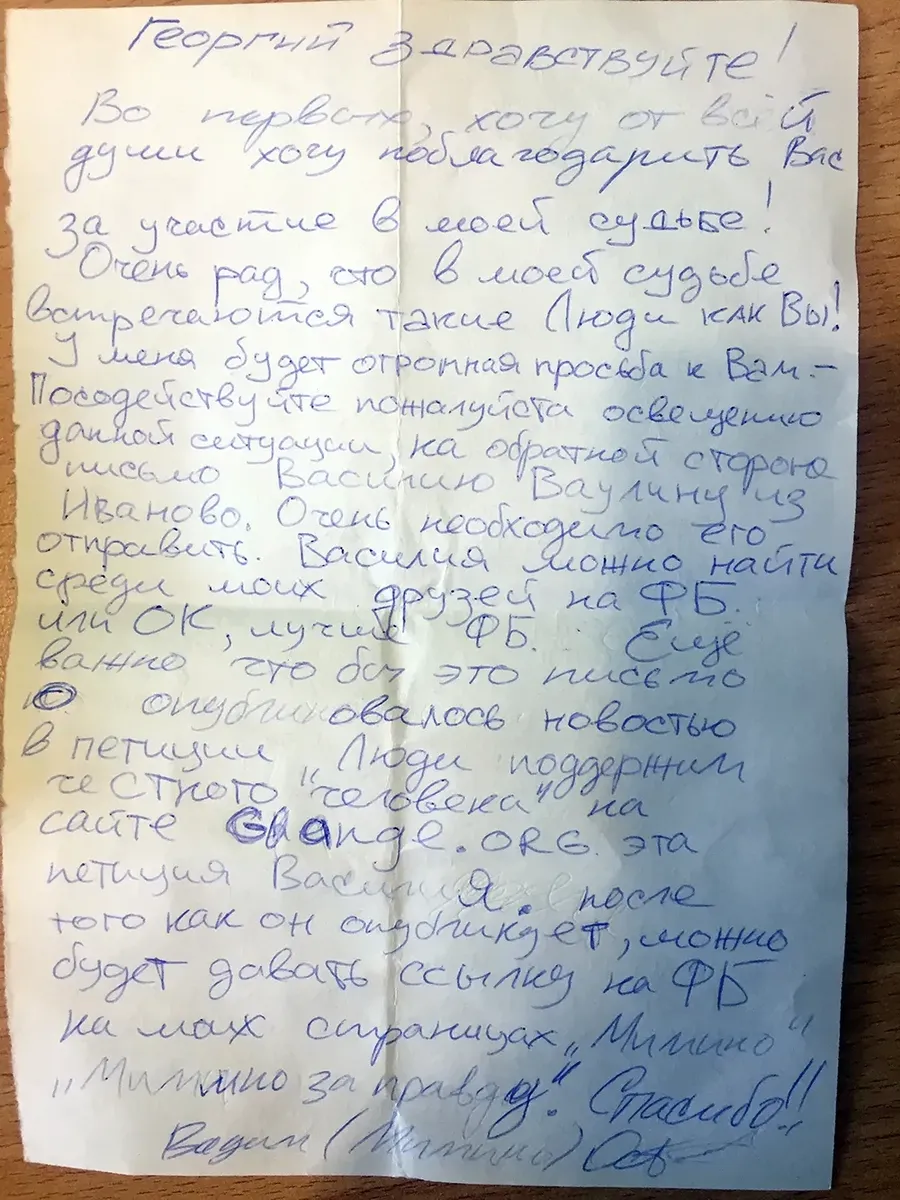 Георгий здравствуйте!
Во первых, хочу от всей
души хочу поблагодарить Вас
за участие в моей судьбе!
Очень рад, что в моей судьбе
встречаются такие Люди как Вы!
У меня будет огромная просьба к Вам –
Посодействуйте пожалуйста освещению
данной ситуации, на обратной стороне
письмо Василию Ваулину из
Иваново. Очень необходимо его
отправить. Василия можно найти
среди моих друзей на ФБ.
или ОК, лучше ФБ. Ещё
важно что бы это письмо
опубликовалось новостью
в петиции „Люди поддержим
честного человека" на
сайте Change.ORG. эта
петиция Василия. после
того как он опубликует, можно
будет давать ссылку на ФБ
на моих страницах „Мимино"
„Мимино за правду". Спасибо!!
Вадим (Мимино)